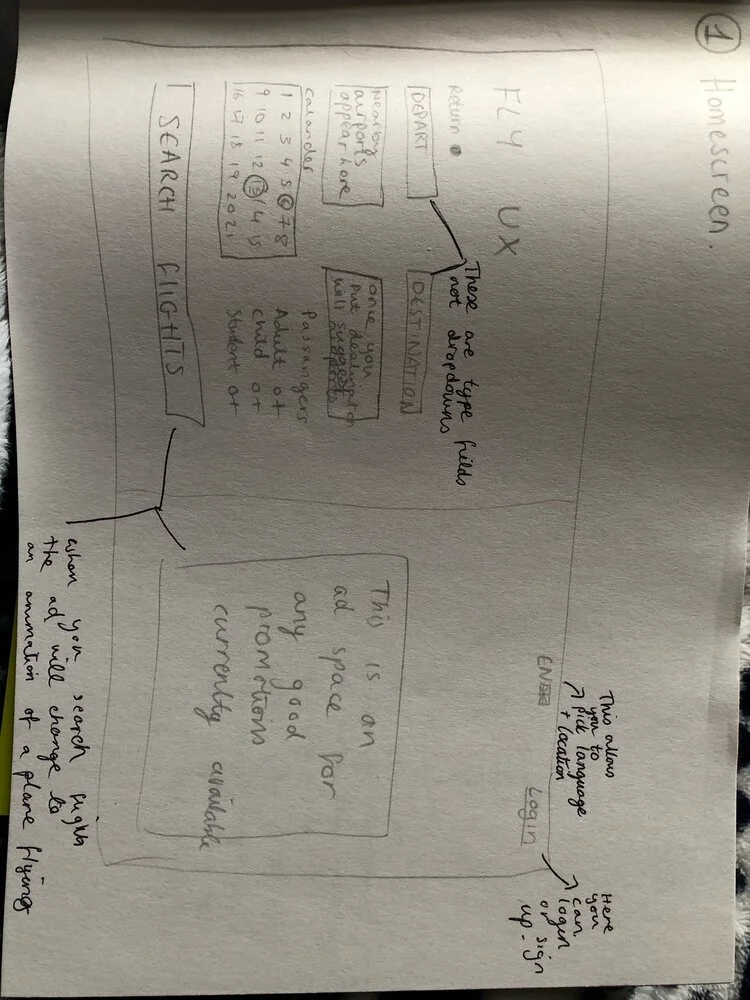 1 Homescreen.
FLY UX
EN
Login
This allows
you to
pick language
+ location
Here
you
can
login
or sign
up.
Return
DEPART
DESTINATION
These are type fields
not dropdowns
Nearby
airports
appear here
once you
put
will suggest
calander
1 2 3 4 5 6 7 8
9 10 11 12 13 14 15
16 17 18 19 20 21
Passangers
Adult 0+
child 0+
Student 0+
SEARCH FLIGHTS
This is an
ad space for
any good
promotions
currently available
when you search flights
the ad will change to
an animation of a plane flying